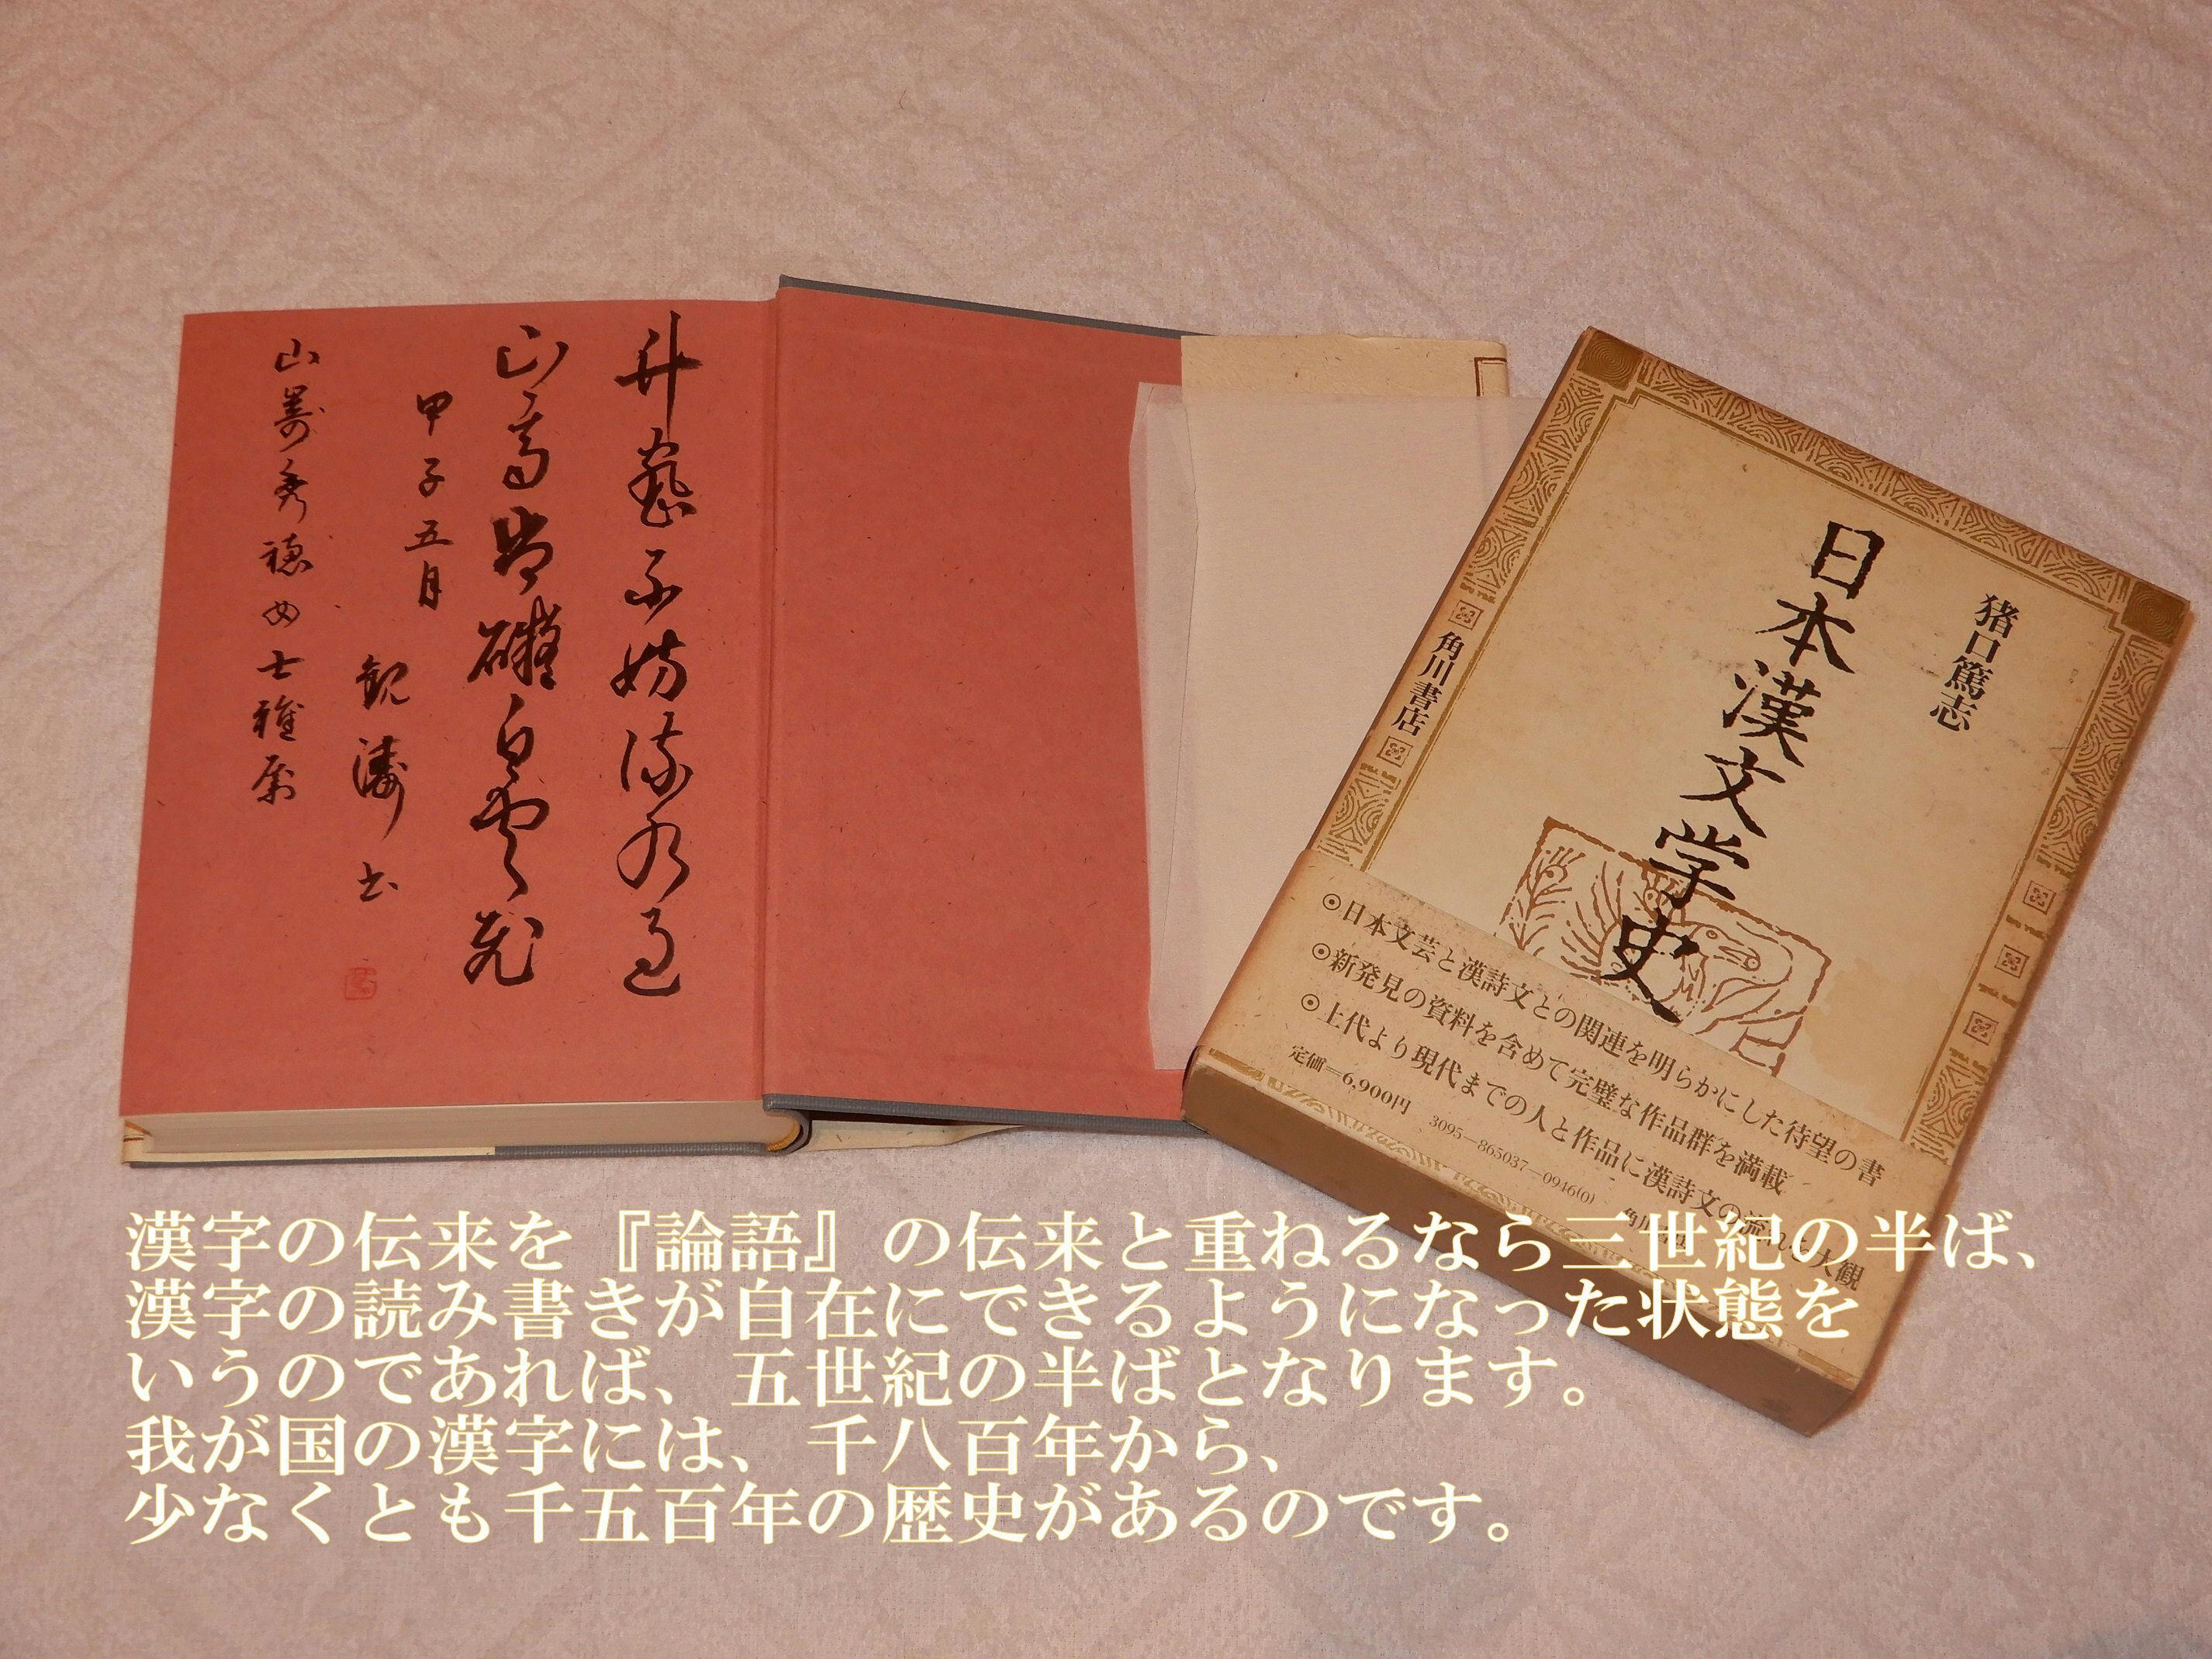 竹密不妨流水過
山高豈礙白雲飛
甲子五月
観濤書
猪口篤志
日本漢文学史
角川書店
⊙日本文芸と漢詩文との関連を明らかにした待望の書
⊙新発見の資料を含めて完璧な作品群を満載
⊙上代より現代までの人と作品に漢詩文の流れを大観
定価=6,900円 3095-865037-0946(0)
漢字の伝来を『論語』の伝来と重ねるなら三世紀の半ば、
漢字の読み書きが自在にできるようになった状態を
いうのであれば、五世紀の半ばとなります。
我が国の漢字には、千八百年から、
少なくとも千五百年の歴史があるのです。